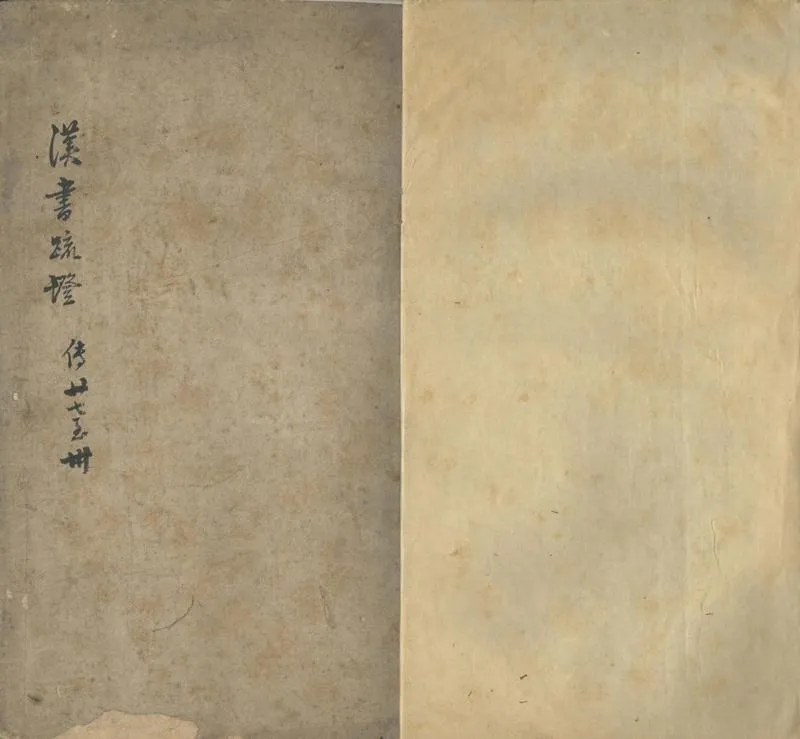 漢書疏證
傳廿七至卌